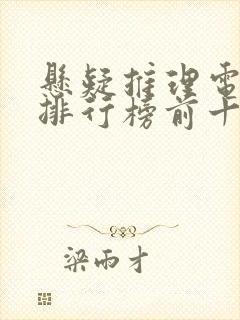 懸疑推理電
排行榜前十
梁雨才